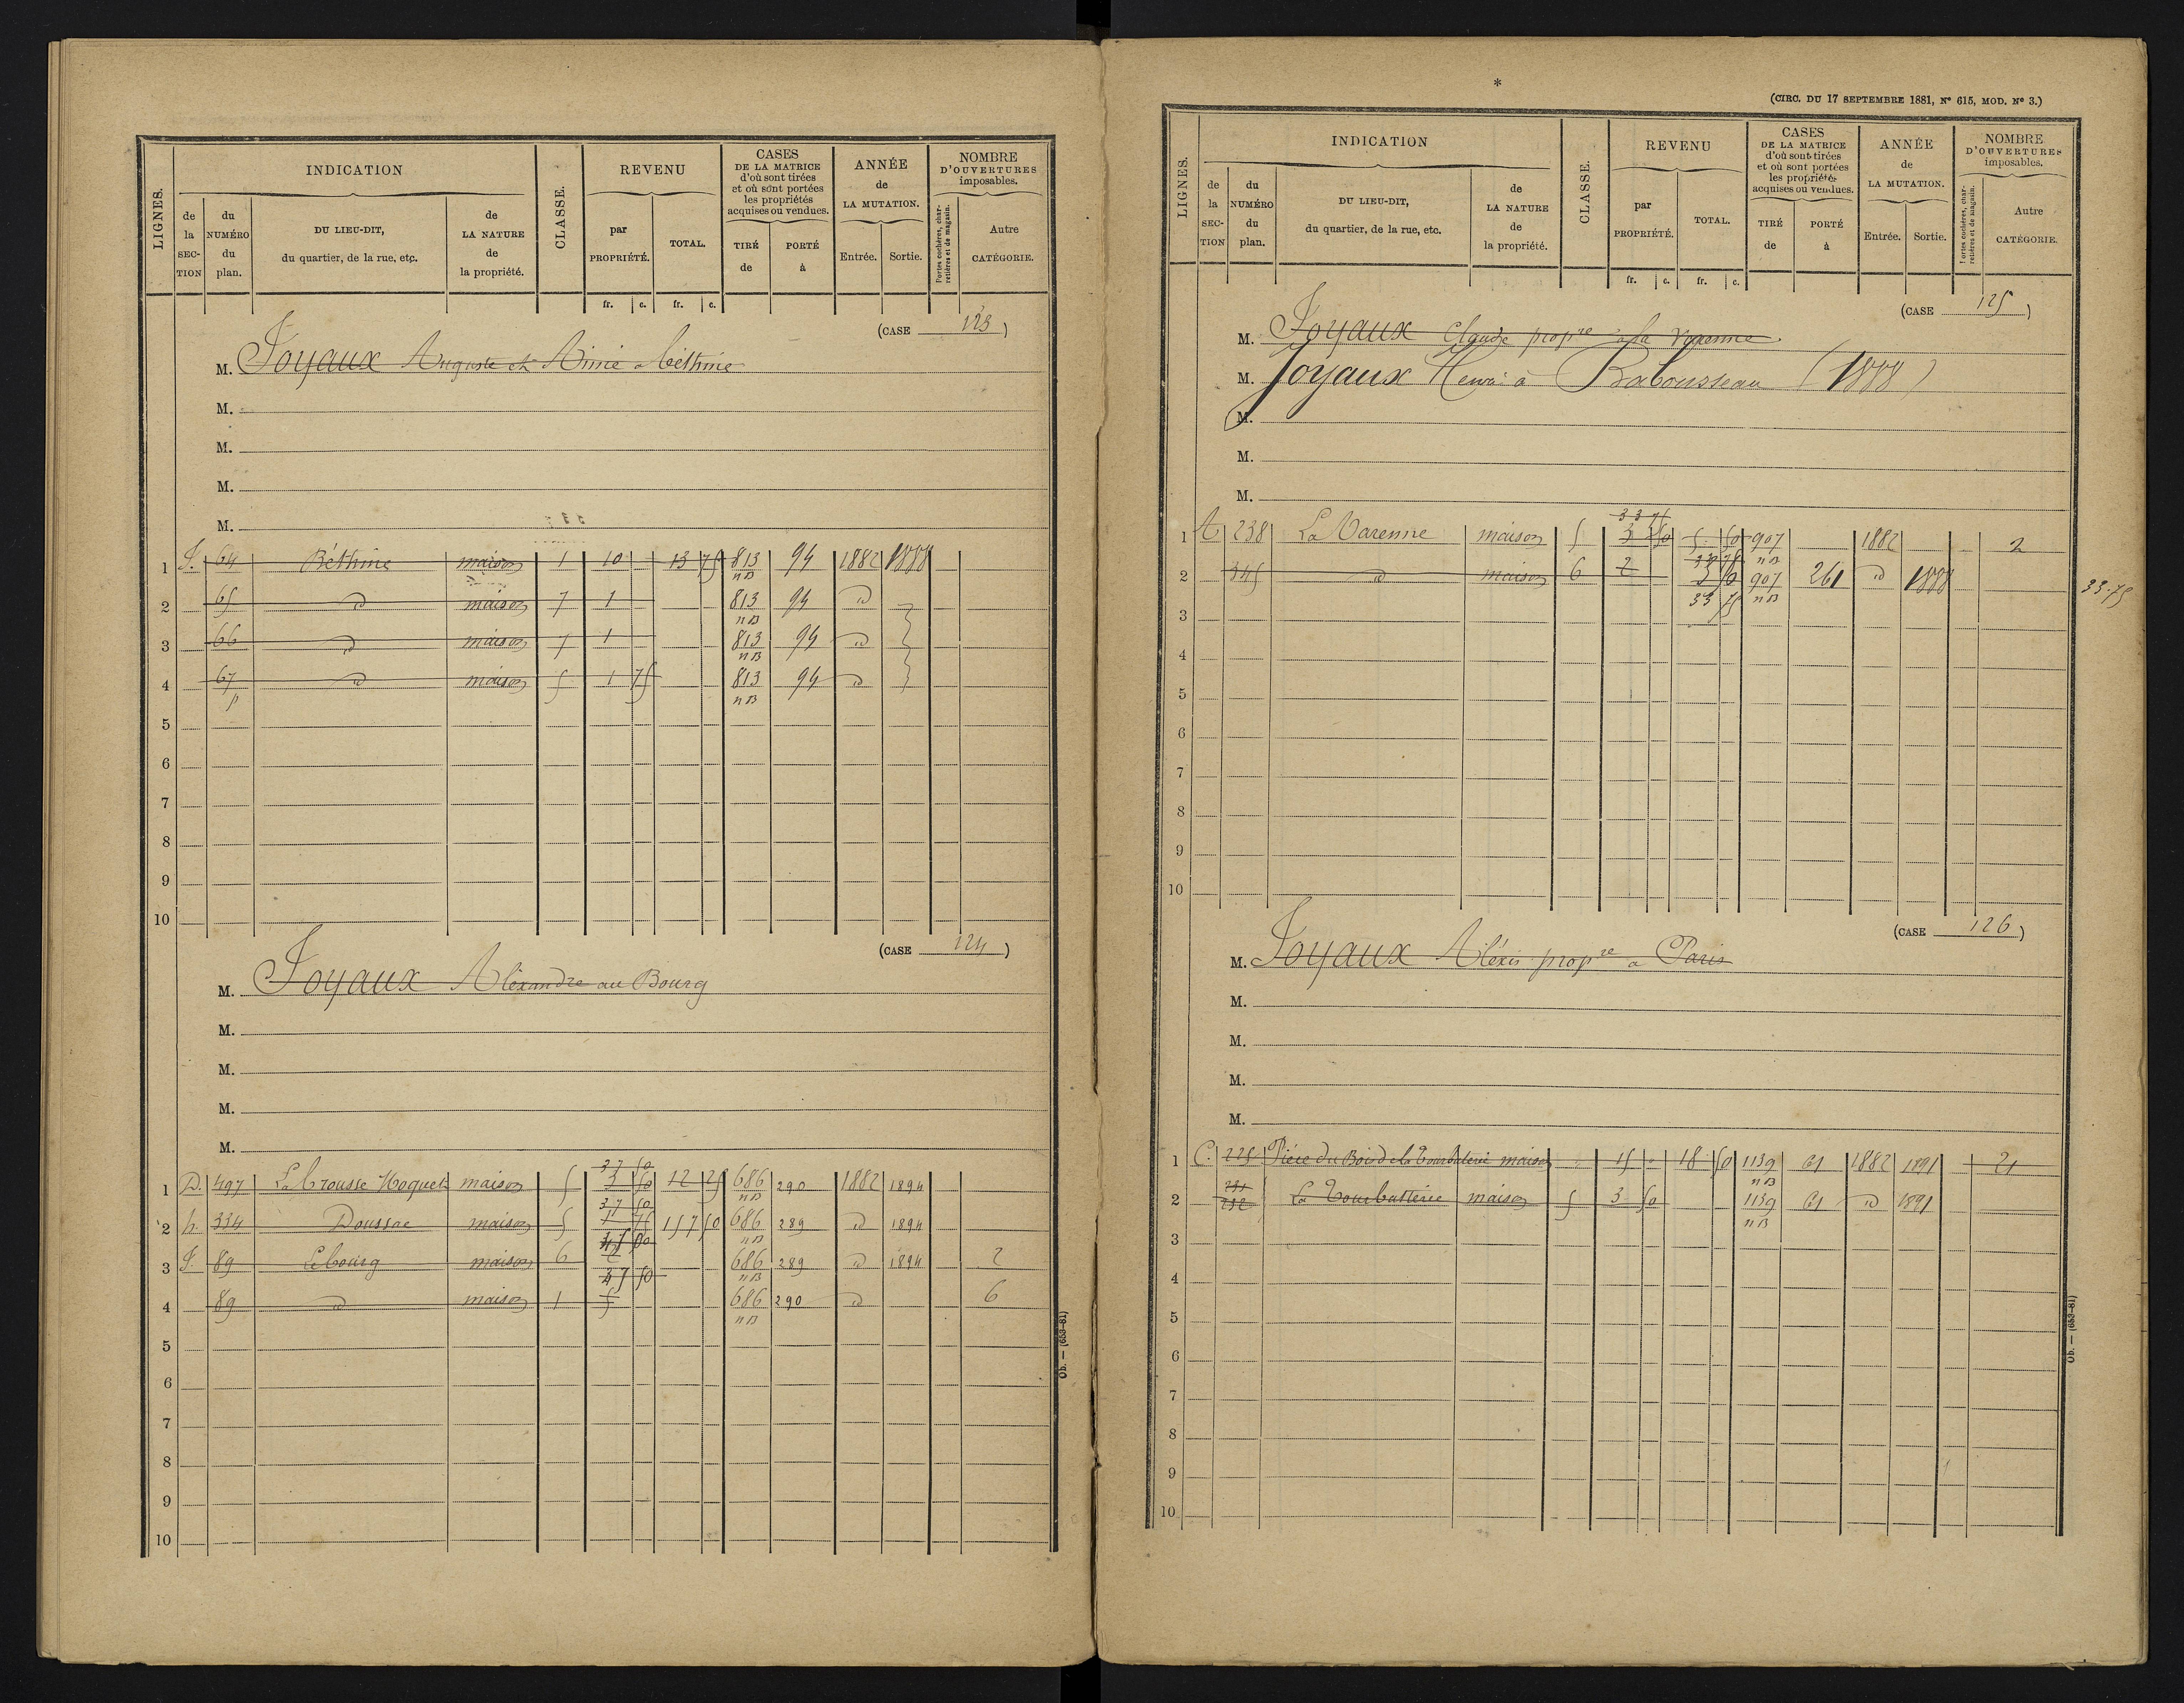 LIGNES.
INDICATION
de la SEC-TION
du NUMÉRO du plan.
DU LIEU-DIT, du quartier, de la rue, etc.
de LA NATURE de la propriété.
CLASSE.
REVENU
par PROPRIÉTÉ.
TOTAL.
fr. c. fr. c.
CASES DE LA MATRICE d'où sont tirées et où sont portées les propriétés acquises ou vendues.
TIRÉ de
PORTÉ à
ANNÉE de LA MUTATION.
Entrée. Sortie.
NOMBRE D'OUVERTURES imposables.
Portes cochères, charretières et de magasin.
Autre CATÉGORIE.
(CASE 123)
M. Joyaux Auguste et Aimé à Béthine
M.
M.
M.
M.
1 J. 64 Béthine maison 1 10 13 75 813 nB 94 1882 1888
2 65 d maison 7 1 813 nB 94 d
3 66 d maison 7 1 813 nB 94 d
4 67 p d maison 5 1 75 813 nB 94 d
5
6
7
8
9
10
(CASE 124)
M. Joyaux Aléxandre au Bourg
M.
M.
M.
M.
1 D. 497 La Brousse Moquet maison 5 37 50 3 50 12 25 686 nB 290 1882 1894
2 h. 334 Doussac maison 5 37 50 1 75 157 50 686 nB 289 d 1894
3 J. 89 Le bourg maison 6 45 00 2 686 nB 289 d 1894 2
4 89 d maison 1 37 50 5 686 nB 290 d 6
5
6
7
8
9
10
Ob. — (653-81)
*
(CIRC. DU 17 SEPTEMBRE 1881, N° 615, MOD. N° 3.)
LIGNES.
INDICATION
de la SEC-TION
du NUMÉRO du plan.
DU LIEU-DIT, du quartier, de la rue, etc.
de LA NATURE de la propriété.
CLASSE.
REVENU
par PROPRIÉTÉ.
TOTAL.
fr. c. fr. c.
CASES DE LA MATRICE d'où sont tirées et où sont portées les propriétés acquises ou vendues.
TIRÉ de
PORTÉ à
ANNÉE de LA MUTATION.
Entrée. Sortie.
NOMBRE D'OUVERTURES imposables.
Portes cochères, charretières et de magasin.
Autre CATÉGORIE.
(CASE 125)
M. Joyaux Claude propre à la Varenne
M. Joyaux Henri à Rabousseau (1888)
M.
M.
M.
1 A 238 La Varenne maison 5 33 75 3 50 5 50 907 nB 1882 2
2 345 d maison 6 2 33 75 3 50 907 nB 261 d 1888
33.75
3 33 75
4
5
6
7
8
9
10
(CASE 126)
M. Joyaux Aléxis propre à Paris
M.
M.
M.
M.
1 C. 225 Pièce du Bois de la Tourbaterie maison 15 18 50 1139 nB 61 1882 1891 21
2 231 232 La Tourbatterie maison 5 3 50 1139 nB 61 d 1891
3
4
5
6
7
8
9
10
Ob. — (653-81)